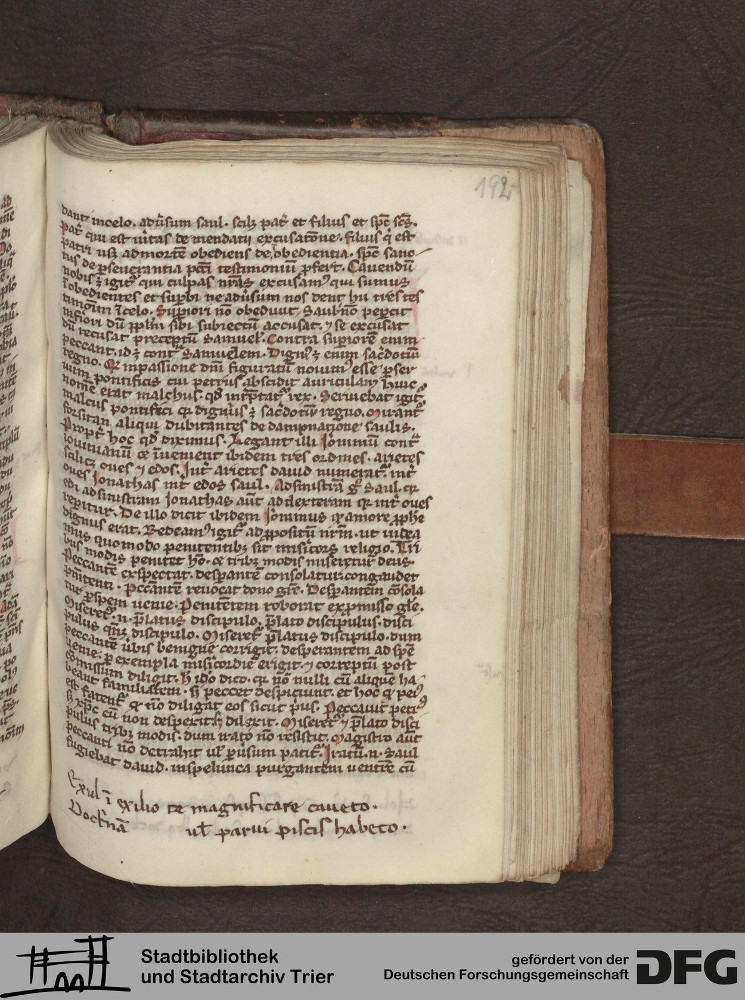 192
dant incelo. adūsum saul. scilȝ pat̄ et filius et sp̄c sc̄s.
pat̄ qui est ūitas de mendatii excusatōne. filius q̇ est
patri usqȝ admortē obediens de obedientia. sp̄c sanc
tus de pseuerantia pac̄ti testimoniū pfert. Cauendū
nobis ē igit̄ qui culpas nr̄as excusam᷒ qui sumus
īobedientes et supbi ne adūsum nos dent hii tres testes
timoīm ī celo. Supiori nō obediuit Saul nō pepcit
īfiori dū pplm sibi subiectū accusat. ⁊ se excusat
dū recusat preceptū samuel. Contra supiorē enim
peccant. id ē cont̄ Samuelem. Dign᷒ ē enim sac̄dotiū
regno. Qr̄ inpassione dn̄i figuratū nouim᷒ esse p ser
uum pontificis cui petrus abscidit auriculam huic
nomē erat malchus. qd̄ infp̄tat̄ rex. Seruiebat igit̄
malcus pontifici qr̄ dignius ē sac̄dotiū regno. Mirant̄
forsitan aliqui dubitantes de damnatione saulis.
Propt̄ hoc qd̄ diximus. Legant illi Ieronimū cont̄
iouinianū ⁊ īuenient ibidem tres ordines. arietes
scilicȝ oues ⁊ edos. Int̄ arietes dauid numerat̄. int̄
oues Ionathas int̄ edos saul. Adsinistrā ḡ Saul. qr̄
edi adsinistram Ionathas aūt ad dexteram qr̄ int̄ oues
repitur. De illo dicit ibidem Ieronimus qr̄ amore pphe
dignus erat. Redeam᷒ igit̄ ad ppositū nr̄m. ut uidea
mus quomodo penitentibȝ sit misīcors religio. Tri
bus modis penitet hō. ⁊ tribȝ modis miseretur deus.
Peccantē exspectat. despantē consolatur. congaudet
penitenti. Peccantē reuocat dono gr̄e. Despantem ꝯsola
tur p spem uenie. Penitētem roborat ex pmisso gl̄e.
Miseret̄ .n. p̄latus discipulo. p̄lato discipulus. disci
pulus quoqȝ discipulo. Miseret̄ p̄latus discipulo. dum
peccantē ūbis benigne corrigit. desperantem ad spē
uenie. p exempla misīcordie erigit. ⁊ correptū post
cōmissum diligit. h̄ ido dico. qr̄ nō nulli cū aliquē ha
beant familiarem. si peccet despiciunt. et hoc q̇ pei᷒
est fatent̄ qr̄ nō diligāt eos sicut p᷒us. Peccauit petr᷒
sȝ xp̄c eū non despexit. sȝ dilexit. Miseret̄ ⁊ p̄lato disci
pulus tribȝ modis. dum irato nō resistit. Magistro aūt
peccanti nō detrahit ul̄ puisum patit̄. Iratū .n. Saul
fugiebat dauid. inspelunca purgantem uentrē cū
Exul ī exilio te magnificare caueto.
Doct̄nā ul̄ parui piscis habeto.
Stadtbibliothek
und Stadtarchiv Trier
gefördert von der
Deutschen Forschungsgemeinschaft
DFG